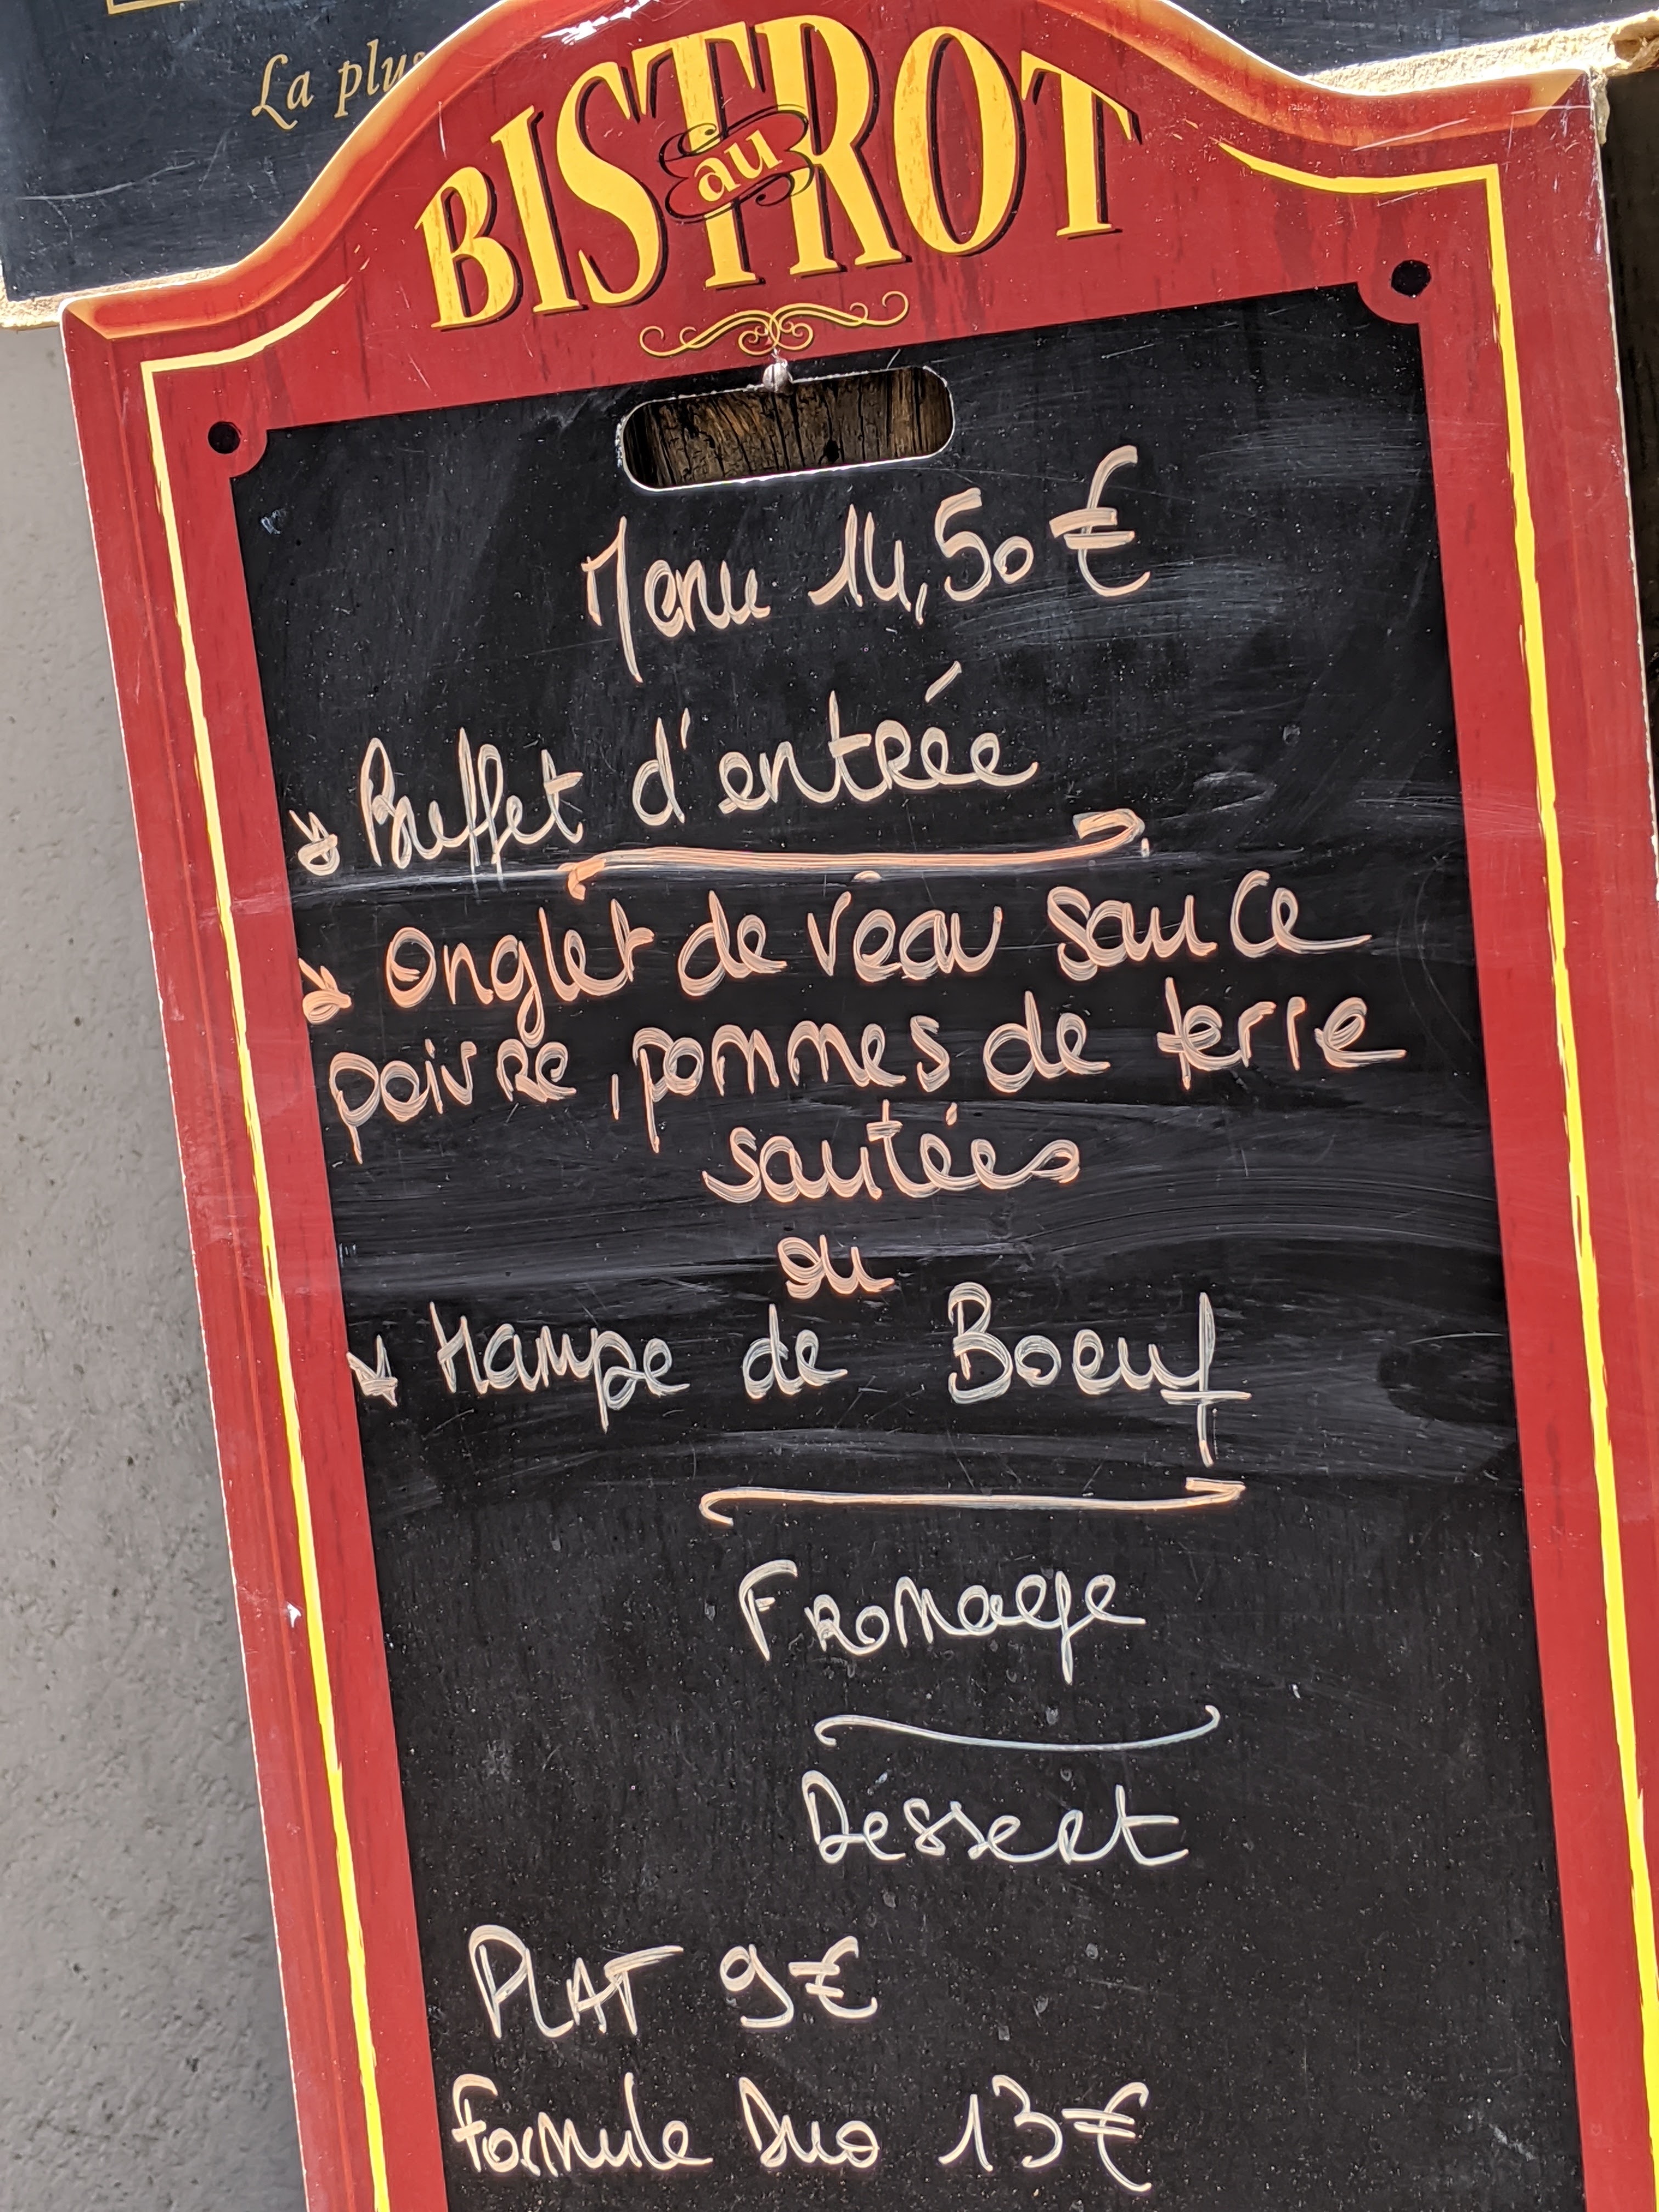 La plus
BISTROT
au
Menu 14,50€
Buffet d'entrée
Onglet de veau sauce
poivre, pommes de terre
sautées
ou
Hampe de Boeuf
Fromage
Dessert
PLAT 9€
Formule Duo 13€